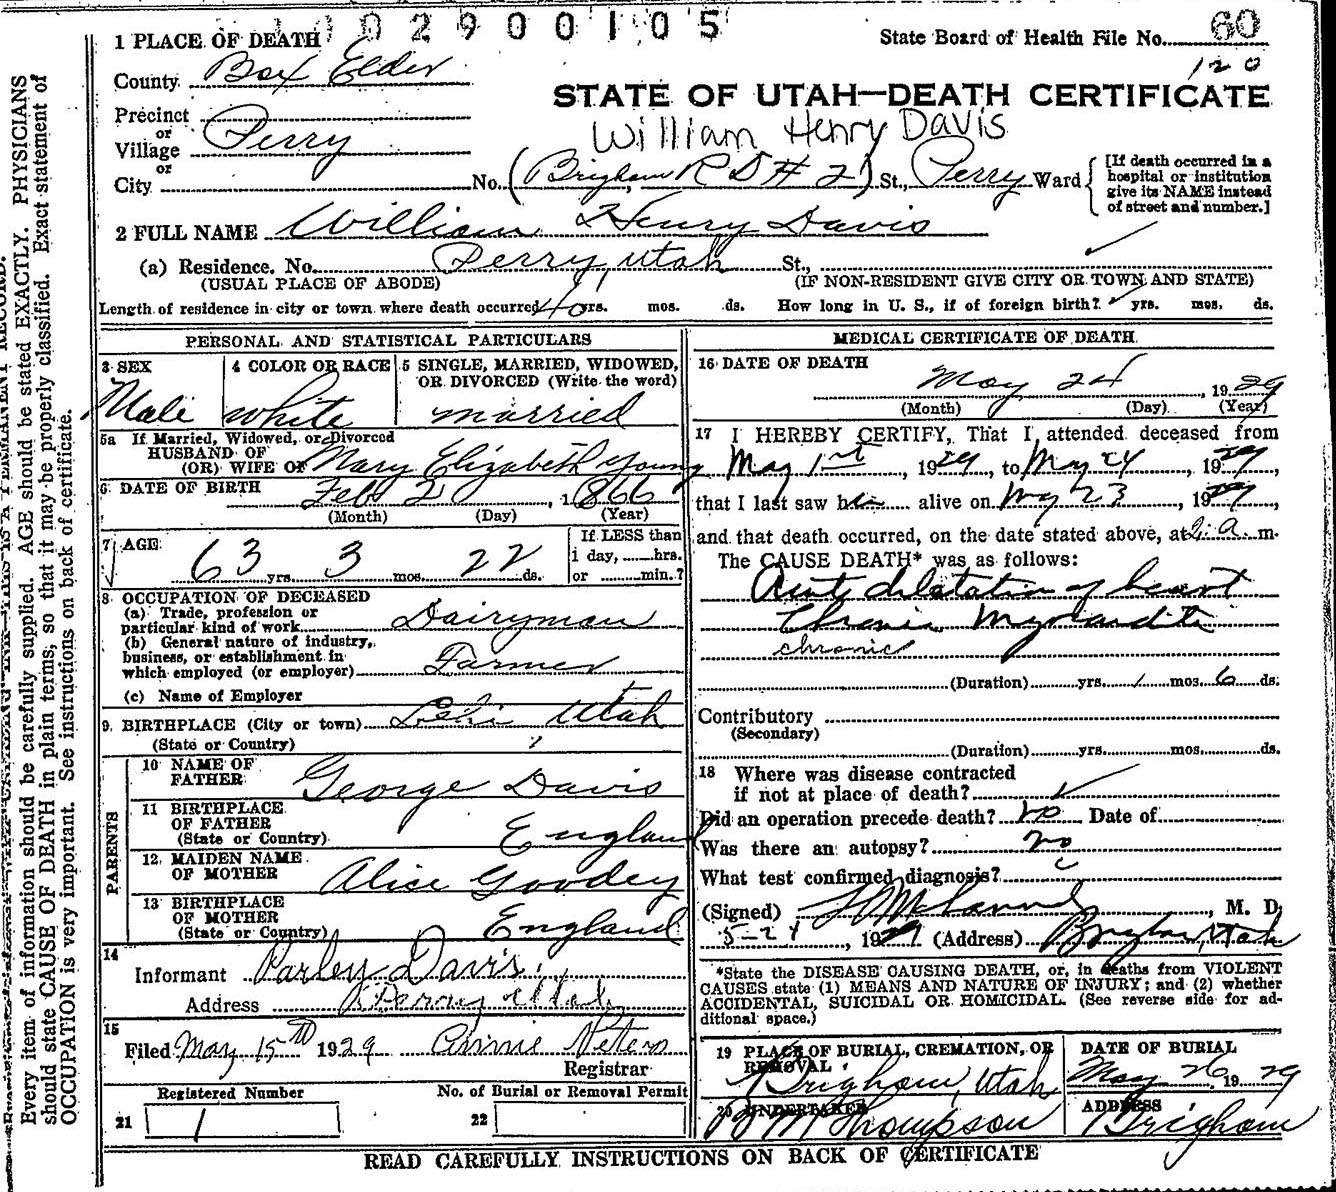 1 0 2 9 0 0 1 0 5
1 PLACE OF DEATH
State Board of Health File No. 60
120
County Box Elder
STATE OF UTAH—DEATH CERTIFICATE
William Henry Davis
Precinct
or
Village Perry
or
City No. (Brigham, R D # 2) St., Perry Ward
[If death occurred in a hospital or institution give its NAME instead of street and number.]
2 FULL NAME William Henry Davis
(a) Residence. No. Perry, Utah St.,
(USUAL PLACE OF ABODE) (IF NON-RESIDENT GIVE CITY OR TOWN AND STATE)
Length of residence in city or town where death occurred 40 yrs. mos. ds. How long in U. S., if of foreign birth? yrs. mos. ds.
PERSONAL AND STATISTICAL PARTICULARS
3 SEX
Male
4 COLOR OR RACE
white
5 SINGLE, MARRIED, WIDOWED, OR DIVORCED (Write the word)
married
5a If Married, Widowed, or Divorced
HUSBAND OF
(OR) WIFE OF Mary Elizabeth Young
6 DATE OF BIRTH Feb 2, 1866
(Month) (Day) (Year)
7 AGE
63 yrs. 3 mos. 22 ds.
If LESS than
1 day, hrs.
or min.?
8 OCCUPATION OF DECEASED
(a) Trade, profession or
particular kind of work Dairyman
(b) General nature of industry,
business, or establishment in
which employed (or employer) Farmer
(c) Name of Employer
9. BIRTHPLACE (City or town) Lehi Utah
(State or Country)
PARENTS
10 NAME OF FATHER George Davis
11 BIRTHPLACE OF FATHER
(State or Country) England
12 MAIDEN NAME OF MOTHER Alice Goodey
13 BIRTHPLACE OF MOTHER
(State or Country) England
14
Informant Parley Davis
Address Perry Utah
15
Filed May 15th 1929 Annie Peters
Registrar
Registered Number
21 1
No. of Burial or Removal Permit
22
MEDICAL CERTIFICATE OF DEATH
16 DATE OF DEATH
May 24, 1929
(Month) (Day) (Year)
17 I HEREBY CERTIFY, That I attended deceased from
May 1st, 1929, to May 24, 1929,
that I last saw him alive on May 23, 1929,
and that death occurred, on the date stated above, at 2 a m.
The CAUSE DEATH* was as follows:
Acute dilatation of heart
Chronic Myocarditis
chronic
(Duration) yrs. 1 mos. 6 ds.
Contributory
(Secondary)
(Duration) yrs. mos. ds.
18 Where was disease contracted
if not at place of death?
Did an operation precede death? no Date of
Was there an autopsy? no
What test confirmed diagnosis?
(Signed) , M. D.
5-24, 1929. (Address) Brigham, Utah
*State the DISEASE CAUSING DEATH, or, in deaths from VIOLENT
CAUSES state (1) MEANS AND NATURE OF INJURY; and (2) whether
ACCIDENTAL, SUICIDAL OR HOMICIDAL. (See reverse side for ad-
ditional space.)
19 PLACE OF BURIAL, CREMATION, OR REMOVAL
Brigham, Utah
DATE OF BURIAL
May 26, 1929
20 UNDERTAKER
B M Thompson
ADDRESS
Brigham
READ CAREFULLY INSTRUCTIONS ON BACK OF CERTIFICATE
Every item of information should be carefully supplied. AGE should be stated EXACTLY. PHYSICIANS
should state CAUSE OF DEATH in plain terms, so that it may be properly classified. Exact statement of
OCCUPATION is very important. See instructions on back of certificate.